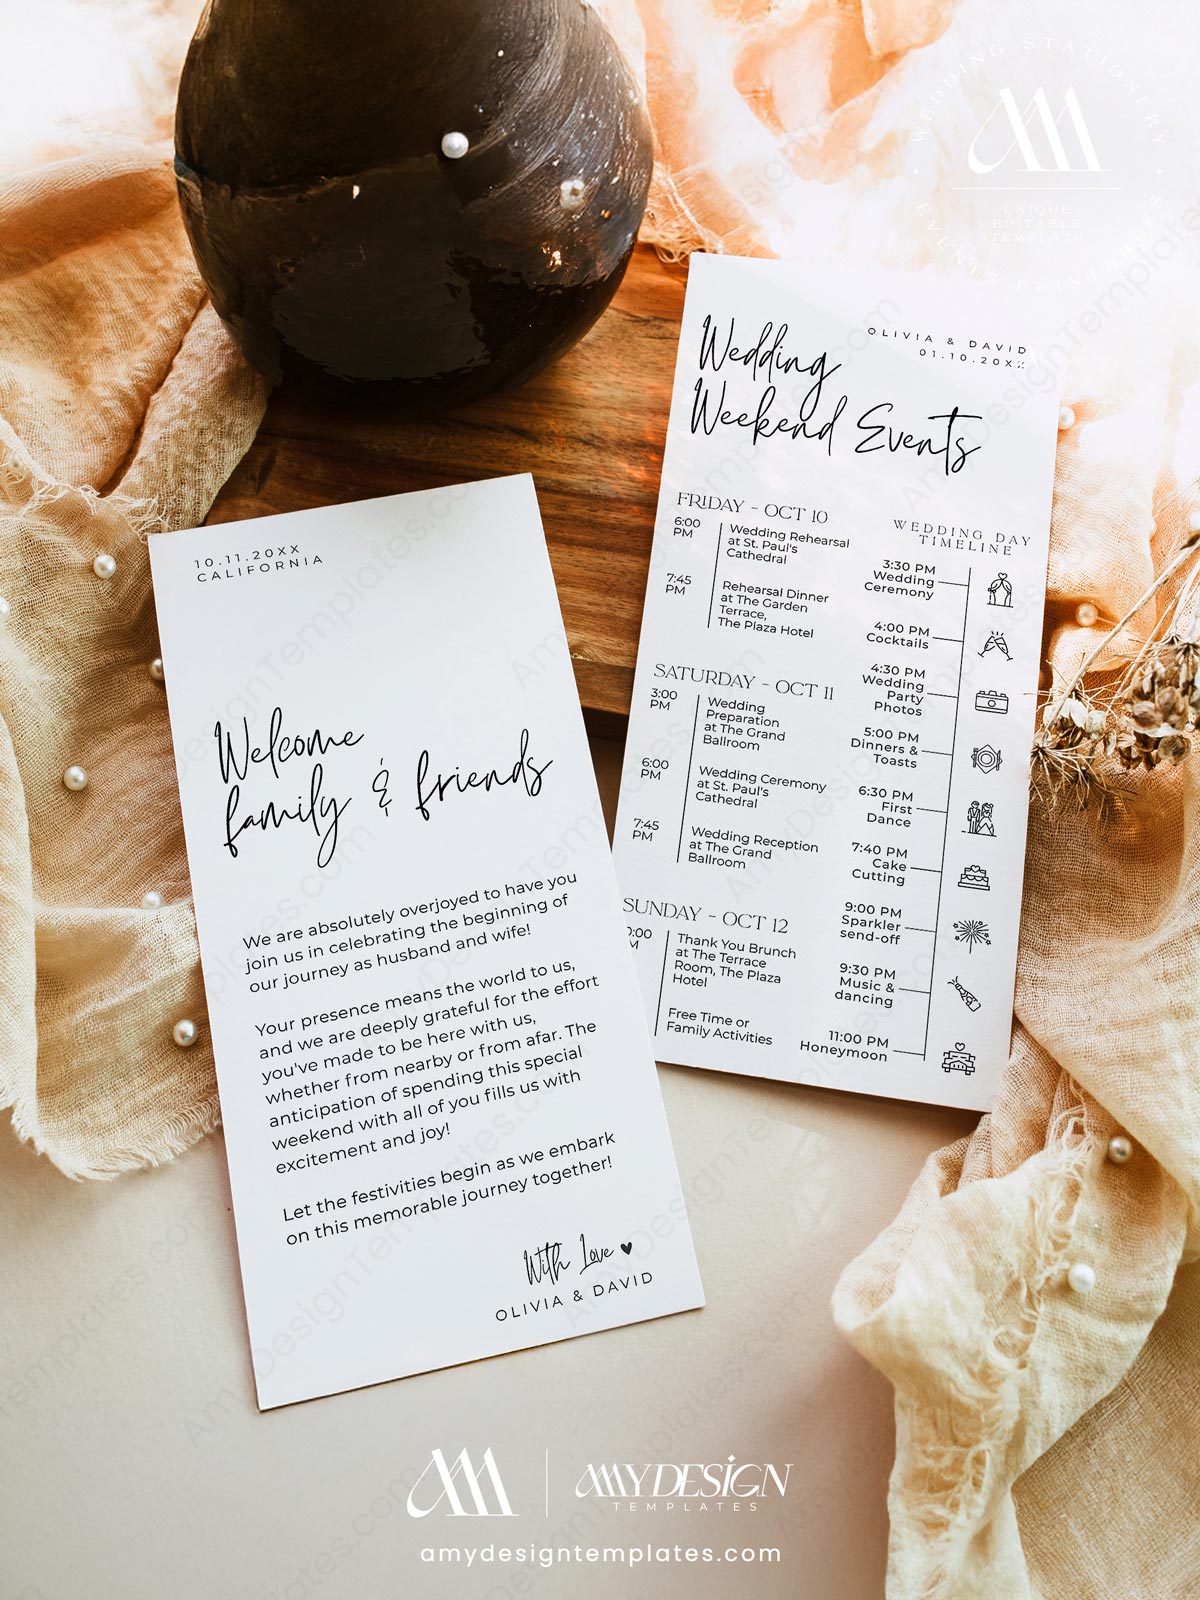 WEDDING STATIONERY
EVENTS PRINTABLES
UNIQUE
EDITABLE
TEMPLATE
OLIVIA & DAVID
01.10.20XX
Wedding
Weekend Events
FRIDAY - OCT 10
6:00
PM
Wedding Rehearsal
at St. Paul's
Cathedral
7:45
PM
Rehearsal Dinner
at The Garden
Terrace,
The Plaza Hotel
SATURDAY - OCT 11
3:00
PM
Wedding
Preparation
at The Grand
Ballroom
6:00
PM
Wedding Ceremony
at St. Paul's
Cathedral
7:45
PM
Wedding Reception
at The Grand
Ballroom
SUNDAY - OCT 12
Thank You Brunch
at The Terrace
Room, The Plaza
Hotel
Free Time or
Family Activities
WEDDING DAY
TIMELINE
3:30 PM
Wedding
Ceremony
4:00 PM
Cocktails
4:30 PM
Wedding
Party
Photos
5:00 PM
Dinners &
Toasts
6:30 PM
First
Dance
7:40 PM
Cake
Cutting
9:00 PM
Sparkler
send-off
9:30 PM
Music &
dancing
11:00 PM
Honeymoon
10.11.20XX
CALIFORNIA
Welcome
family & friends
We are absolutely overjoyed to have you
join us in celebrating the beginning of
our journey as husband and wife!
Your presence means the world to us,
and we are deeply grateful for the effort
you've made to be here with us,
whether from nearby or from afar. The
anticipation of spending this special
weekend with all of you fills us with
excitement and joy!
Let the festivities begin as we embark
on this memorable journey together!
With Love ♥
OLIVIA & DAVID
AMY DESIGN
TEMPLATES
amydesigntemplates.com